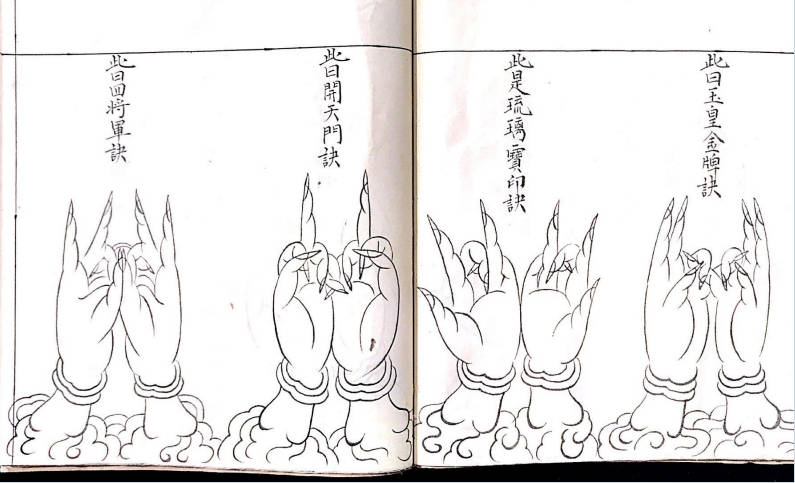 此曰玉皇金牌訣
此是琉璃寶印訣
此曰開天門訣
此曰四將軍訣